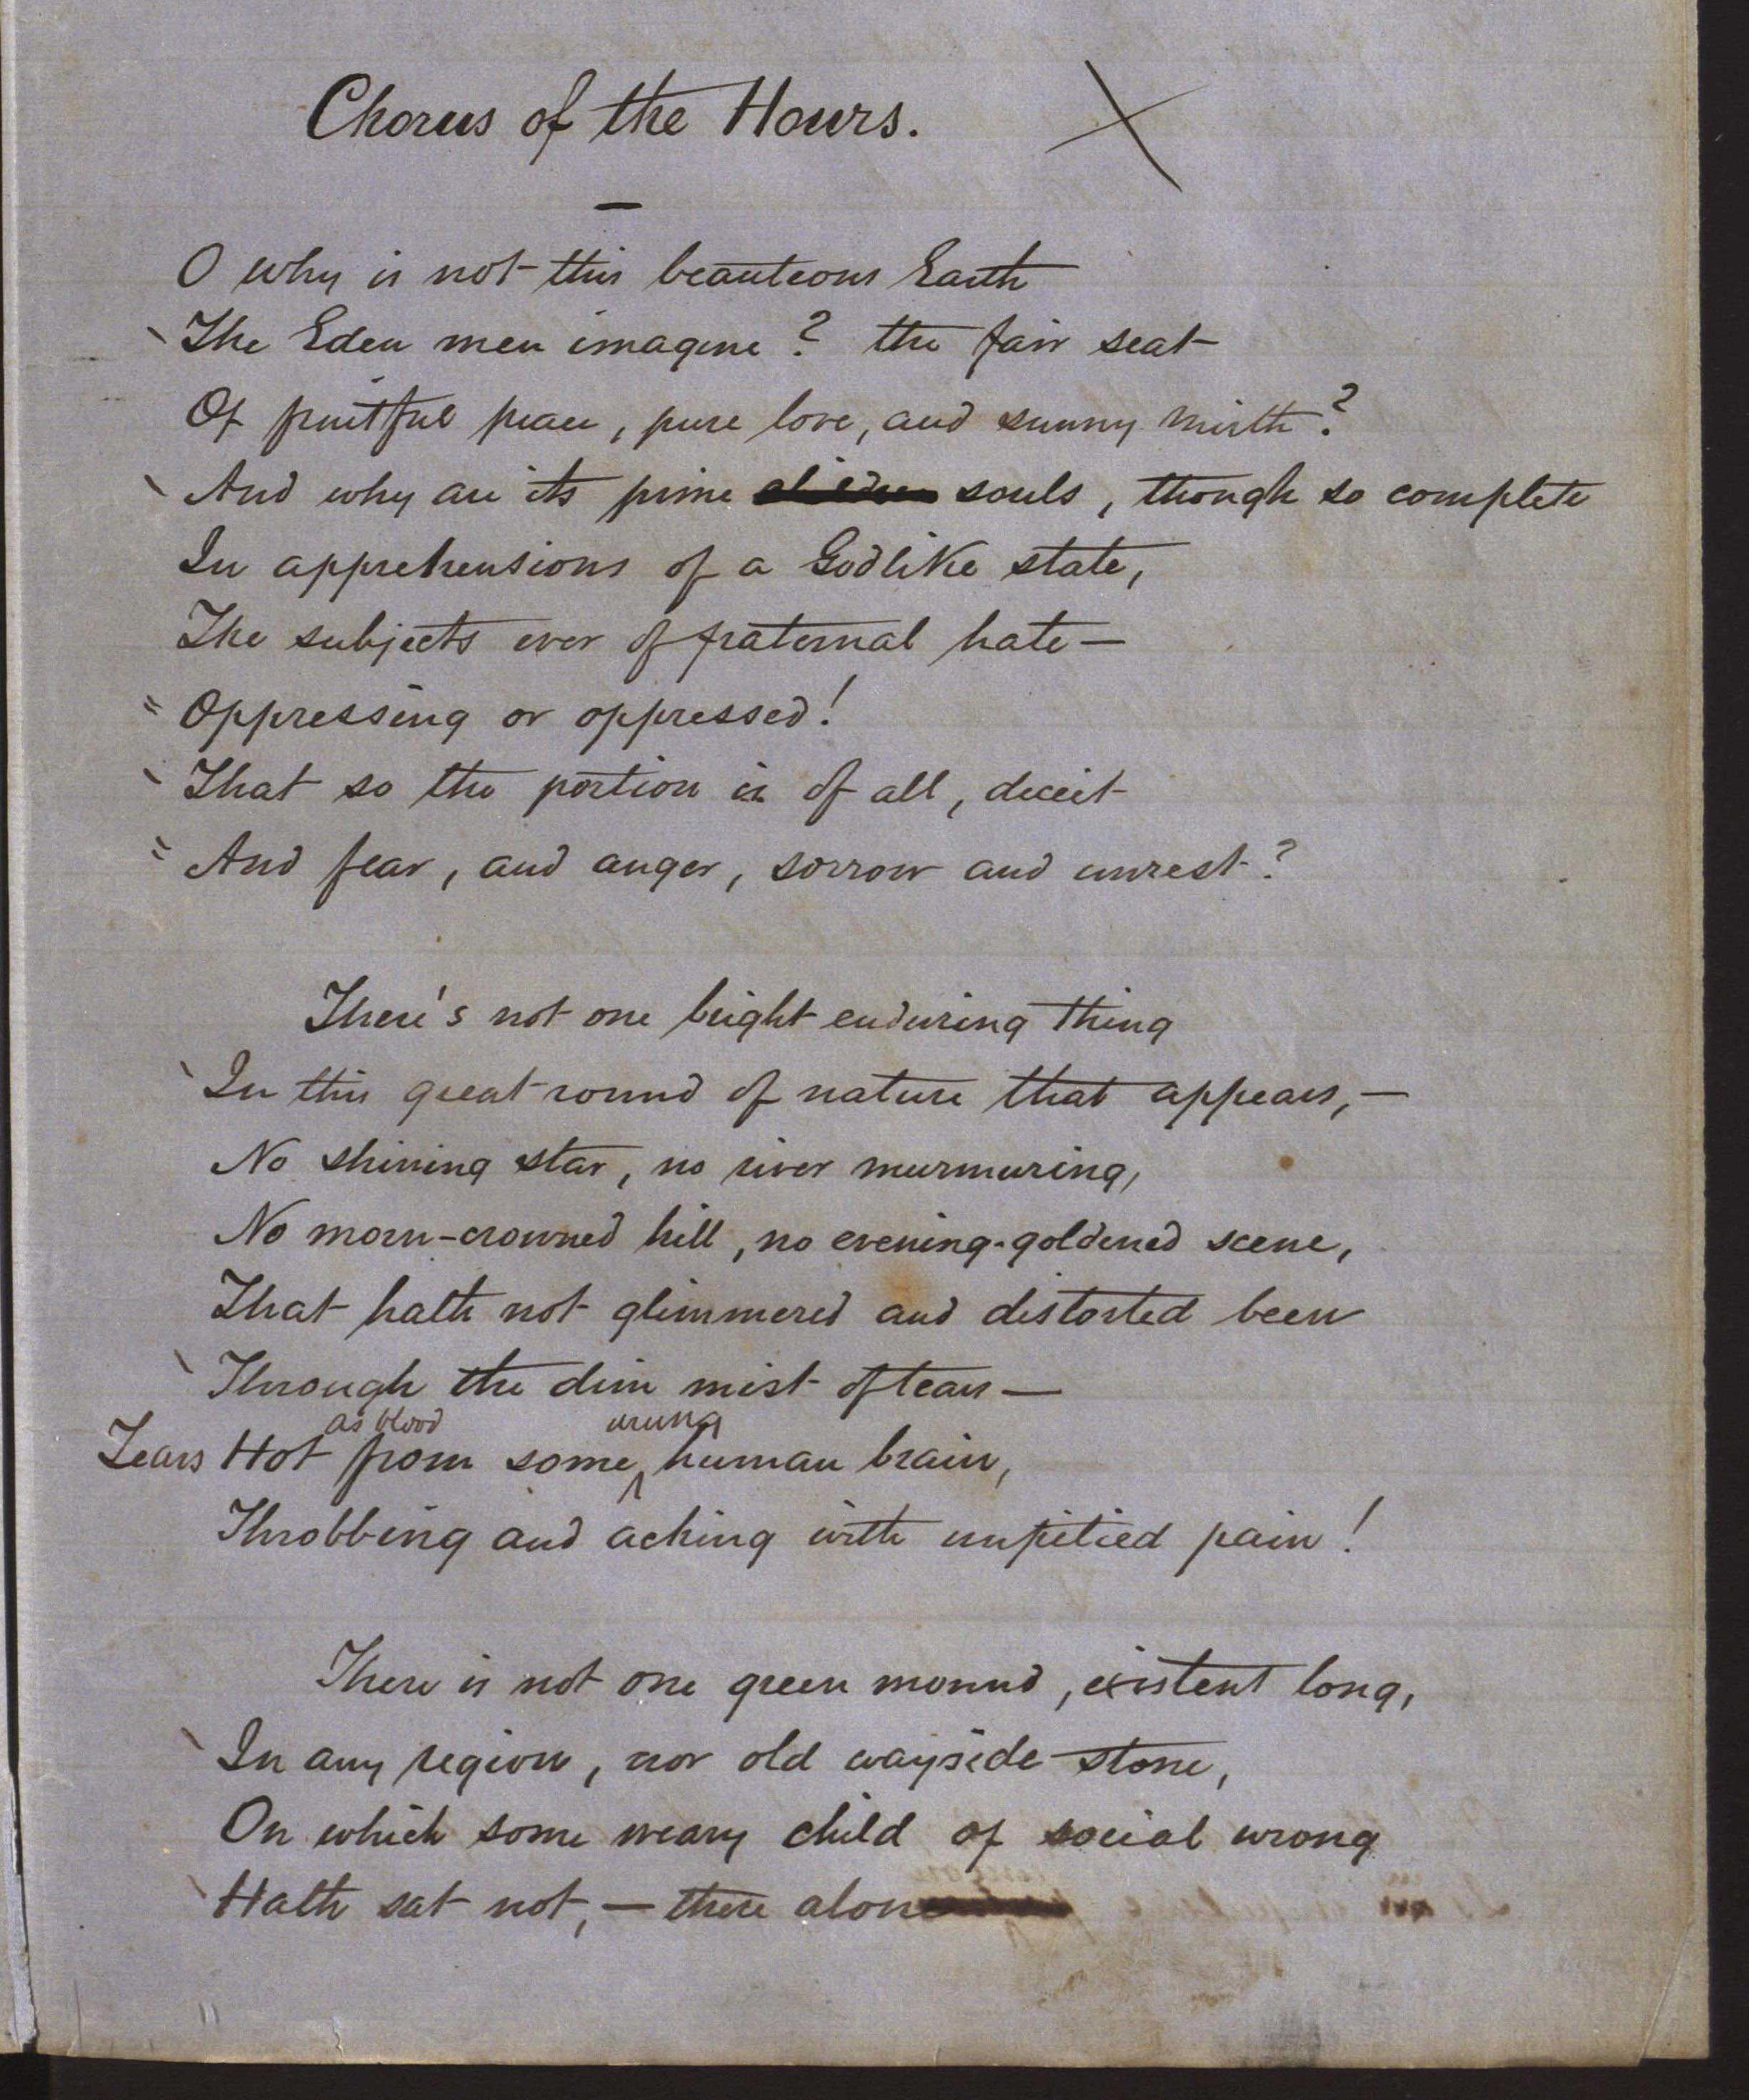 Chorus of the Hours.
O why is not this beauteous Earth
The Eden men imagine? the fair seat
Of fruitful peace, pure love, and sunny mirth?
And why are its prime souls, though so complete
In apprehensions of a Godlike state,
The subjects ever of fraternal hate—
Oppressing or oppressed!
That so the portion is of all, deceit
And fear, and anger, sorrow and unrest?
There's not one bright enduring thing
In this great round of nature that appears,—
No shining star, no river murmuring,
No morn-crowned hill, no evening-goldened scene,
That hath not glimmered and distorted been
Through the dim mist of tears—
as blood wrung
Tears Hot from some human brain,
Throbbing and aching with unpitied pain!
There is not one green mound, existent long,
In any region, nor old wayside stone,
On which some weary child of social wrong
Hath sat not,— there alone